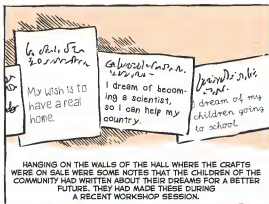 My wish is to
have a real
home.
I dream of becom-
ing a scientist,
so I can help my
country.
I dream of my
children going
to school
HANGING ON THE WALLS OF THE HALL WHERE THE CRAFTS
WERE ON SALE WERE SOME NOTES THAT THE CHILDREN OF THE
COMMUNITY HAD WRITTEN ABOUT THEIR DREAMS FOR A BETTER
FUTURE. THEY HAD MADE THESE DURING
A RECENT WORKSHOP SESSION.